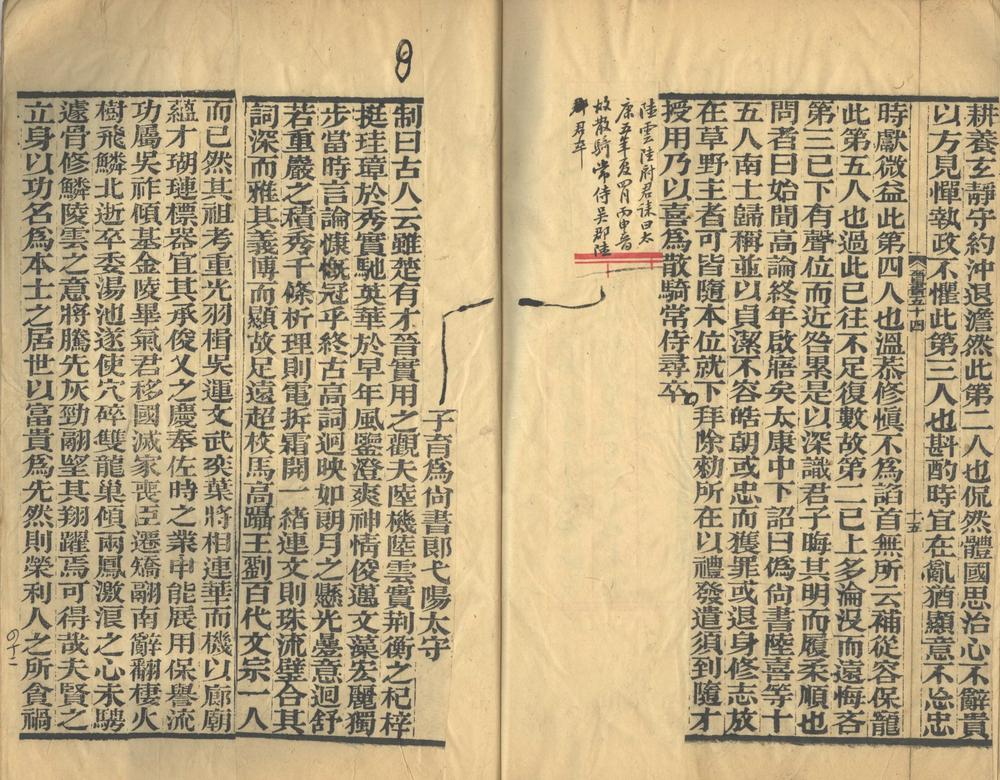 耕養玄靜守約沖退澹然此第二人也侃然體國思治心不辭貴
以方見憚執政不懼此第三人也斟酌時宜在亂猶顯意不忘忠
時獻微益此第四人也溫恭修慎不為諂首無所云補從容保寵
此第五人也過此已往不足復數故第二已上多淪沒而遠悔吝
第三已下有聲位而近咎累是以深識君子晦其明而履柔順也
問者曰始聞高論終年啟寤矣太康中下詔曰僞尚書陸喜等十
五人南士歸稱並以貞潔不容皓朝或忠而獲罪或退身修志放
在草野主者可皆隨本位就下拜除勑所在以禮發遣須到隨才
授用乃以喜為散騎常侍尋卒
五十四
十五
陸雲陸府君誄曰太
康五年夏四月丙申晉
故散騎常侍吳郡陸
郡君卒
子育為尚書郎弋陽太守
制曰古人云雖楚有才晉實用之觀夫陸機陸雲實荆衡之杞梓
挺珪璋於秀實馳英華於早年風鑒澄爽神情俊邁文藻宏麗獨
步當時言論慷慨冠乎終古高詞迥映如朗月之懸光疊意迴舒
若重巖之積秀千條析理則電坼霜開一緒連文則珠流璧合其
詞深而雅其義博而顯故足遠超枚馬高躡王劉百代文宗一人
而已然其祖考重光羽楫吳運文武奕葉將相連華而機以廊廟
蘊才瑚璉標器宜其承俊乂之慶奉佐時之業申能展用保譽流
功屬吳祚傾基金陵畢氣君移國滅家喪臣遷矯翮南辭翻棲火
樹飛鱗北逝卒委湯池遂使穴碎雙龍巢傾兩鳳激浪之心未騁
遽骨修鱗陵雲之意將騰先灰勁翮望其翔躍焉可得哉夫賢之
立身以功名為本士之居世以富貴為先然則榮利人之所貪禍